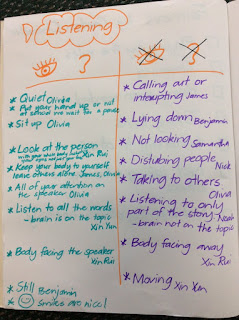 Listening
* Quiet Olivia
* Put your hand up or not
at school we wait for a pause
* Sit up Olivia
* Look at the person
Xin Rui
* Keep your body to yourself
leave others alone. James, Olivia
* All of your attention on
the speaker Olivia
* Listen to all the words
- brain is on the topic
Xin Yun
* Body facing the speaker
Xin Rui
* Still Benjamin
* Smiles are nice!
* Calling out or
interupting James
* Lying down Benjamin
* Not looking Samantha
* Distubing people
Nick
* Talking to others
Olivia
* Listening to only
part of the story
- brain not on the topic
* Body facing away
Xin Rui
* Moving Xin Yun